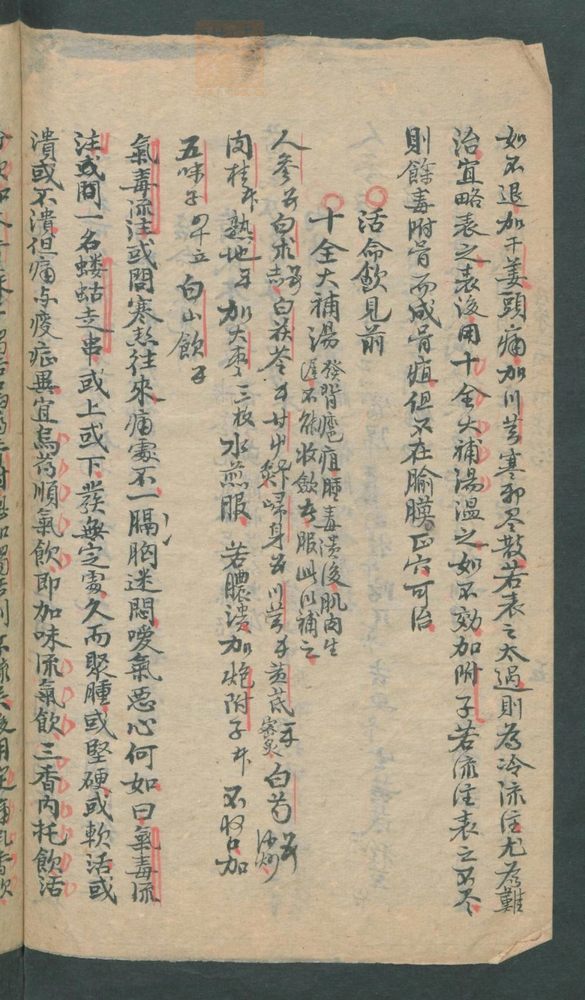 如不退加干姜頭痛加川芎寒邪尽散若表之太過則為冷流注尤為難
治宜略表之表後用十全大補湯溫之如不効加附子若流注表之不尽
則餘毒附骨而成骨疽但不在腧膜正穴可治
活命飲見前
十全大補湯發背癰疽腫毒潰後肌肉生
遲不能收斂在服此以補之
人參 白朮 白茯苓 甘草 歸身 川芎 黃芪蜜炙 白芍
肉桂 熟地 加大枣三枚水煎服 若膿潰加炮附子 不收口加
五味子 白山飲
氣毒流注或問寒热往來痛處不一膈胸迷悶噯氣惡心何如曰氣毒流
注或問一名蝼蛄走串或上或下發無定處久而聚腫或堅硬或軟活或
潰或不潰但痛与痰症異宜烏药順氣飲即加味流氣飲三香內托飲活